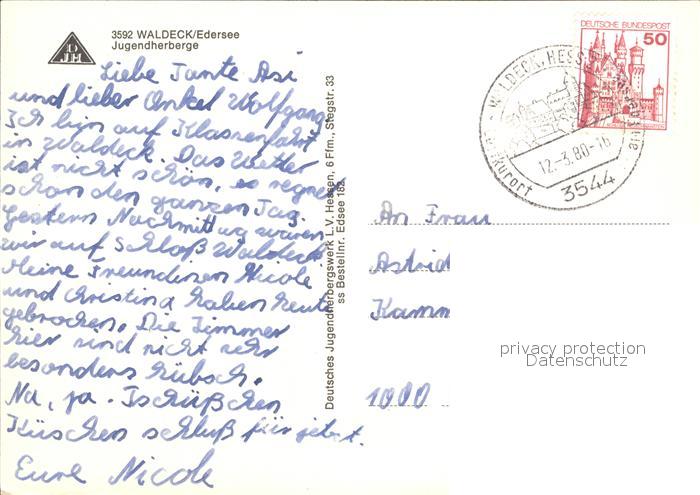 3592 WALDECK/Edersee
Jugendherberge
DJH
Liebe Tante Asi
und lieber Onkel Wolfgang
Ich bin auf Klassenfahrt
in Waldeck. Das Wetter
ist nicht schön, es regnet
schon den ganzen Tag.
Gestern Nachmittag waren
wir auf Schloß Waldeck
Meine Freundinen Nicole
und Christina haben heute
gebrochen. Die Zimmer
hier sind nicht sehr
besonders hübsch.
Na, ja. Tschüßchen
Küschen schluß für jetzt.
Eure Nicole
Deutsches Jugendherbergswerk L.V. Hessen, 6 Ffm., Stegstr. 33
ss Bestellnr. Edsee 182
DEUTSCHE BUNDESPOST
50
WALDECK, HESSEN
12.-3.80-16
3544
An Frau
Astrid
Kamm
1000
privacy protection
Datenschutz